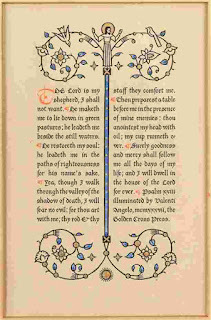 THE Lord is my
shepherd, I shall
not want. He maketh
me to lie down in green
pastures; he leadeth me
beside the still waters.
He restoreth my soul:
he leadeth me in the
paths of righteousness
for his name's sake.
Yea, though I walk
through the valley of the
shadow of death, I will
fear no evil: for thou art
with me; thy rod & thy
staff they comfort me.
Thou preparest a table
before me in the presence
of mine enemies: thou
anointest my head with
oil; my cup runneth o-
ver. Surely goodness
and mercy shall follow
me all the days of my
life; and I will dwell in
the house of the Lord
for ever. Psalm xxiii
illuminated by Valenti
Angelo, mcmxxvii, the
Golden Cross Press.